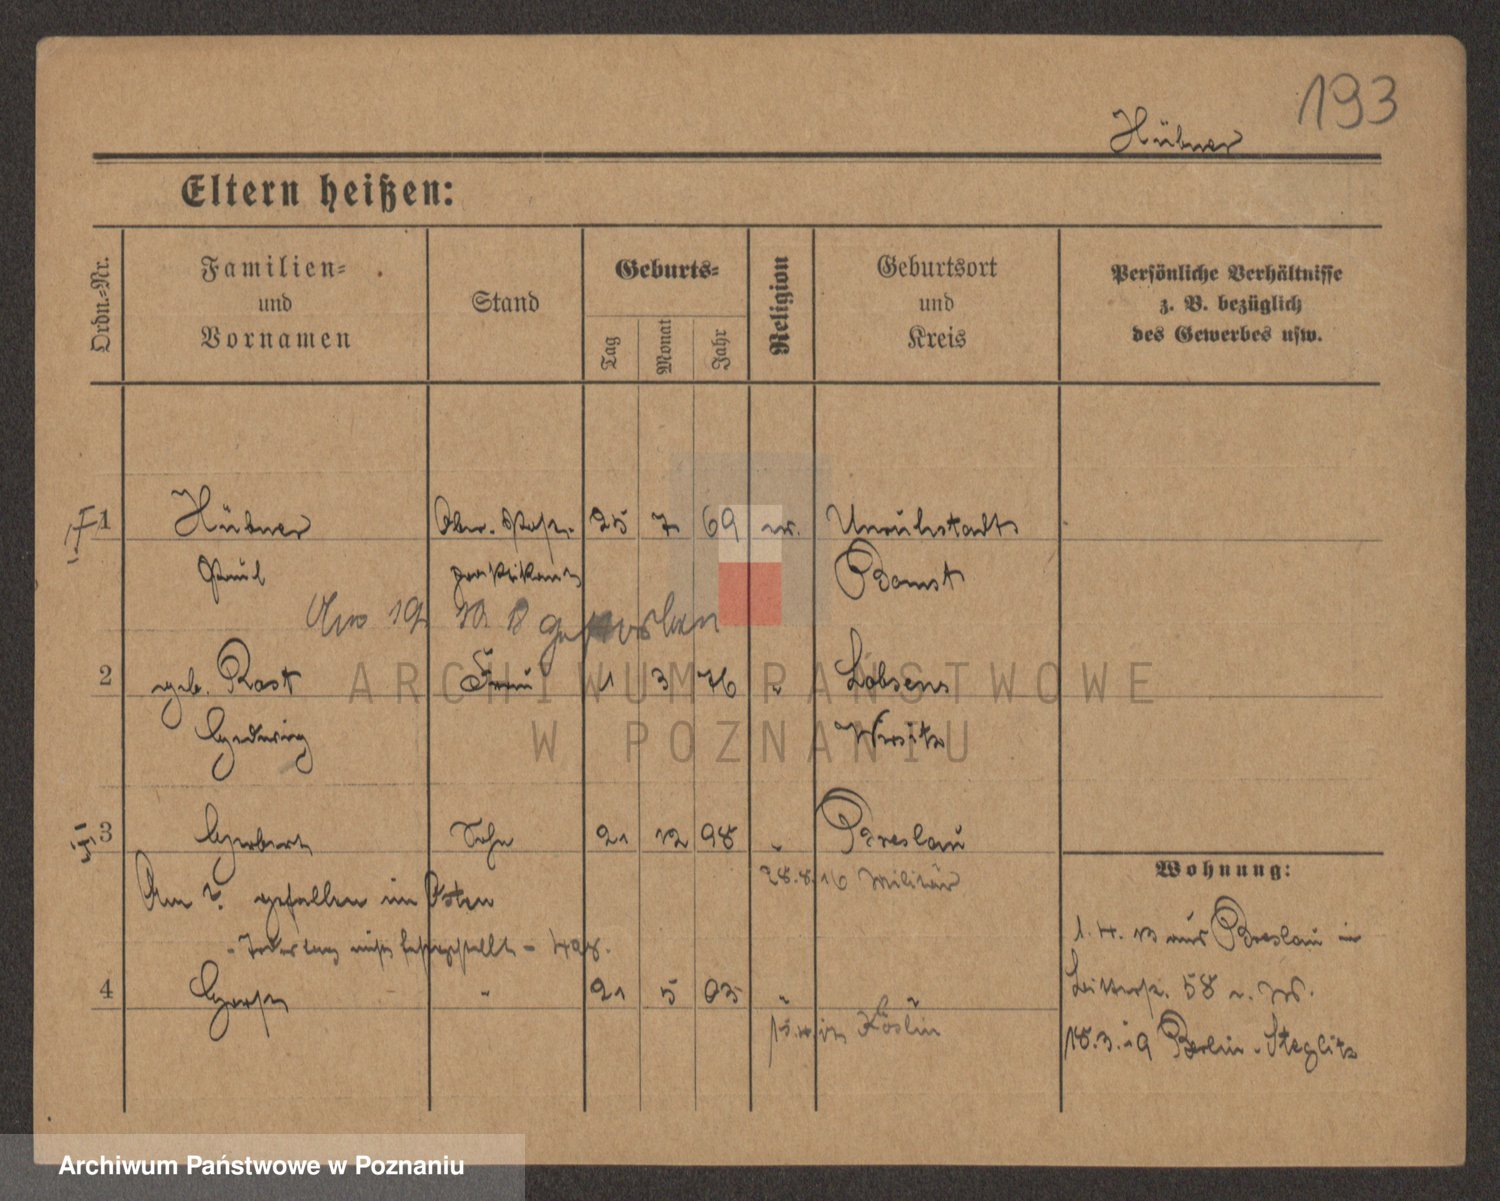 193
Hübner
Eltern heißen:
Ordn.-Nr.
Familien-
und
Vornamen
Stand
Geburts-
Tag
Monat
Jahr
Religion
Geburtsort
und
Kreis
Persönliche Verhältnisse
z. B. bezüglich
des Gewerbes usw.
1 Hübner Ober-Post- 25 7. 69 ev. Unruhstadt
Paul praktikant Bomst
Am 19 10 18 gestorben
2 geb. Rast Frau 1 3 76 " Lobsens
Hedwig Wirsitz
3 Herbert Sohn 21 12 98 " Breslau
28.8.16 Militär
Am ? gefallen im Osten
- Todestag nicht festgestellt -
4 Horst " 21 5 03 " "
Köslin
Wohnung:
1. 4. 13 aus Breslau in
58
18.3.19 Berlin-Steglitz
ARCHIWUM PAŃSTWOWE
W POZNANIU
Archiwum Państwowe w Poznaniu